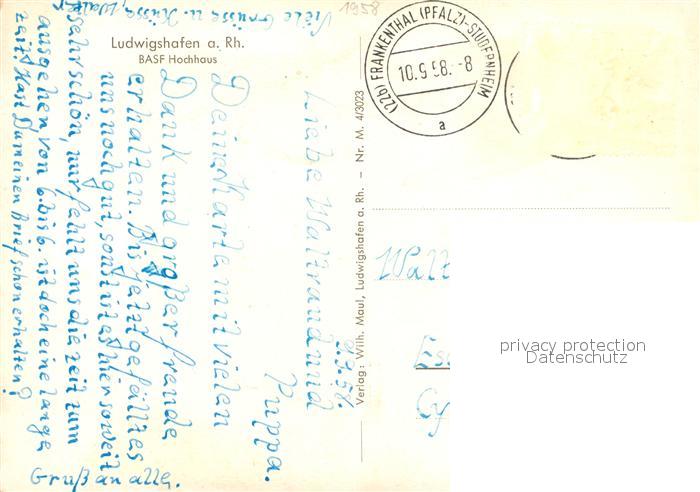 1958
Ludwigshafen a. Rh.
BASF Hochhaus
(22b) FRANKENTHAL (PFALZ)-STUDERNHEIM
10.9.58.-8
a
Verlag: Wilh. Maul, Ludwigshafen a. Rh. – Nr. M. 4/3023
9.9.58.
Liebe Waltraud und
Puppa.
Deine Karte mit vielen
Dank und großer freude
erhalten. Bis jetzt gefällt es
uns noch gut, sonst ist es hier soweit
sehr schön, nur fehlt uns die zeit zum
ausgehen von 6. bis 6. ist doch eine lange
zeit. Hast Du meinen Brief schon erhalten?
Gruß an alle.
Viele Grüsse u. Küsse, Walter
Walt
Es
privacy protection
Datenschutz